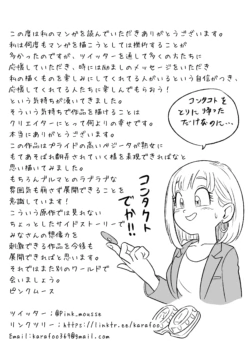 この度は私のマンガを読んでいただきありがとうございます。
私は何度もマンガを描こうとしては挫折することが
多かったのですが、ツイッターを通して多くの人たちに
応援していただき、時には励ましのメッセージをいただき
私の描くものを楽しみにしてくれてる人がいるという自信がつき、
応援してくれる人たちに楽しんでもらおう!
という気持ちが湧いてきました。
そういう気持ちで作品を描けることは
クリエイターにとって何よりの幸せです。
本当にありがとうございます。
この作品はプライドの高いベジータが熟女に
もてあそばれ翻弄されていく様を表現できればなと
思い描いてみました。
もちろんブルマとのラブラブな
雰囲気も崩さず展開できることを
意識しています!
こういう原作では見れない
ちょっとしたサイドストーリーで
みなさんの想像力を
刺激できる作品を今後も
展開できればと思います。
それではまた別のワールドで
会いましょう。
ピンクムース
ツイッター:@Pink_mousse
リンクツリー:https://linktr.ee/karafoo
Email:karafoo869@gmail.com
コンタクトを
とりに帰った
だけなのに…
コンタクト
でか!!